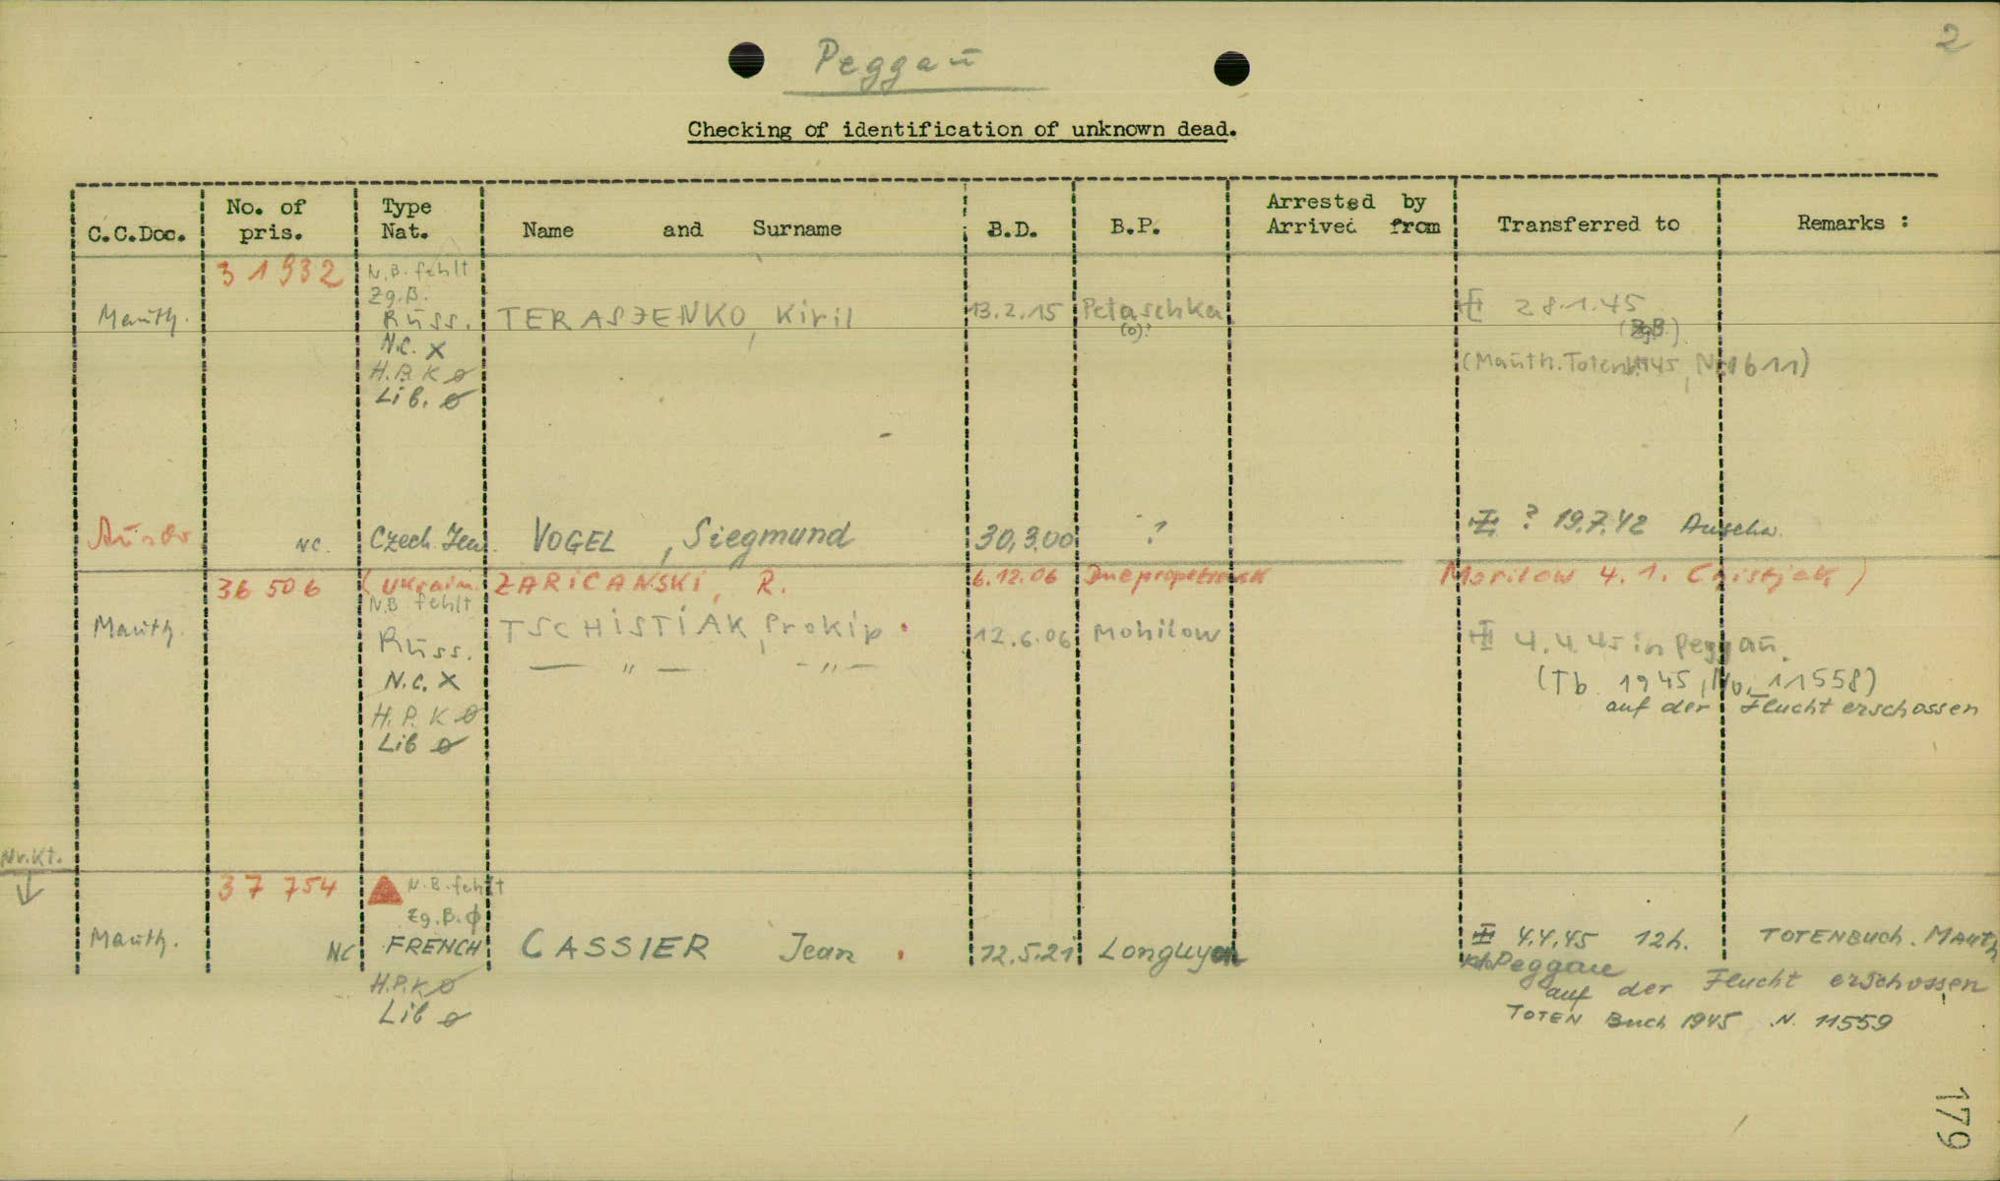 2
Peggaū
Checking of identification of unknown dead.
C.C.Doc. No. of pris. Type Nat. Name and Surname B.D. B.P. Arrested by Arrived from Transferred to Remarks :
31932 N.B. fehlt
Zg.B.
Mauth. Rūss. TERASZENKO, Kiril 13.2.15 Petaschka 28.1.45
(o)? (ZgB.)
N.C. X
H.P.K ø (Maūth. Totenb. 1945, Nr 1611)
Lib. ø
NC. Czech. Jew. VOGEL, Siegmund 30.3.00 ? ? 19.7.42 Auschw.
36 506 (Ukrain. ZARICANSKI, R. 6.12.06 Dnepropetrowsk 4.1.
N.B fehlt
Mauth. Rūss. TSCHISTIAK, Prokip. 12.6.06 Mohilow 4.4.45 in Peggaū.
— " — — " —
N.C. X (Tb. 1945, No. 11558)
H.P.K ø auf der Flucht erschossen
Lib ø
Nr.Kt.
37 754 N.B. fehlt
Zg.B. ϕ
Mauth. NC FRENCH CASSIER Jean. 12.5.21 Longuyon 4.4.45 12h. TOTENBUCH. MAUTH
Peggau
H.P.K ø auf der Flucht erschossen
Lib ø TOTEN Buch 1945 N. 11559
179